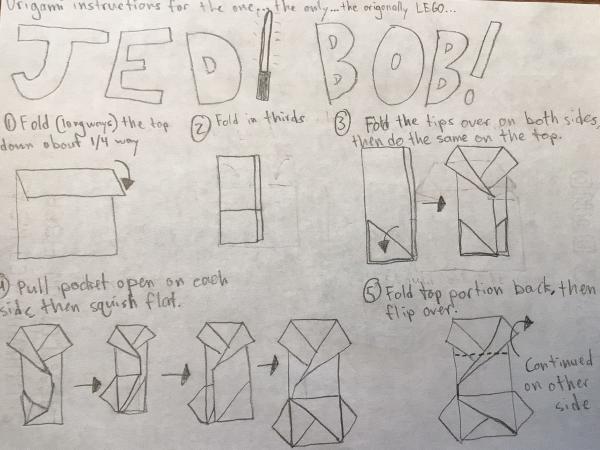 Origami instructions for the one... the only... the origonally LEGO...
JEDI BOB!
① Fold (longways) the top
down about 1/4 way
② Fold in thirds
③ Fold the tips over on both sides,
then do the same on the top.
4 Pull pocket open on each
side, then squish flat.
⑤ Fold top portion back, then
flip over.
Continued
on other
side